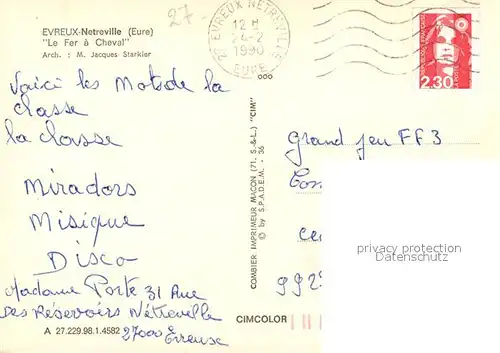 27-
EVREUX-Netreville (Eure)
"Le Fer à Cheval"
Arch. : M. Jacques Starkier
27 EVREUX NETREVILLE
12 H
24-2
1990
EURE
2,30
Voici les Mots de la
classe
la classe
Miradors
Misique
Disco
Madame Porte 31 Rue
des Réservoirs Nétreville
27000 Evreuse
A 27.229.98.1.4582
COMBIER IMPRIMEUR MACON (71, S.-&-L.) "CIM"
© by S.P.A.D.E.M. - 36
CIMCOLOR
grand jeu FF3
privacy protection
Datenschutz
992